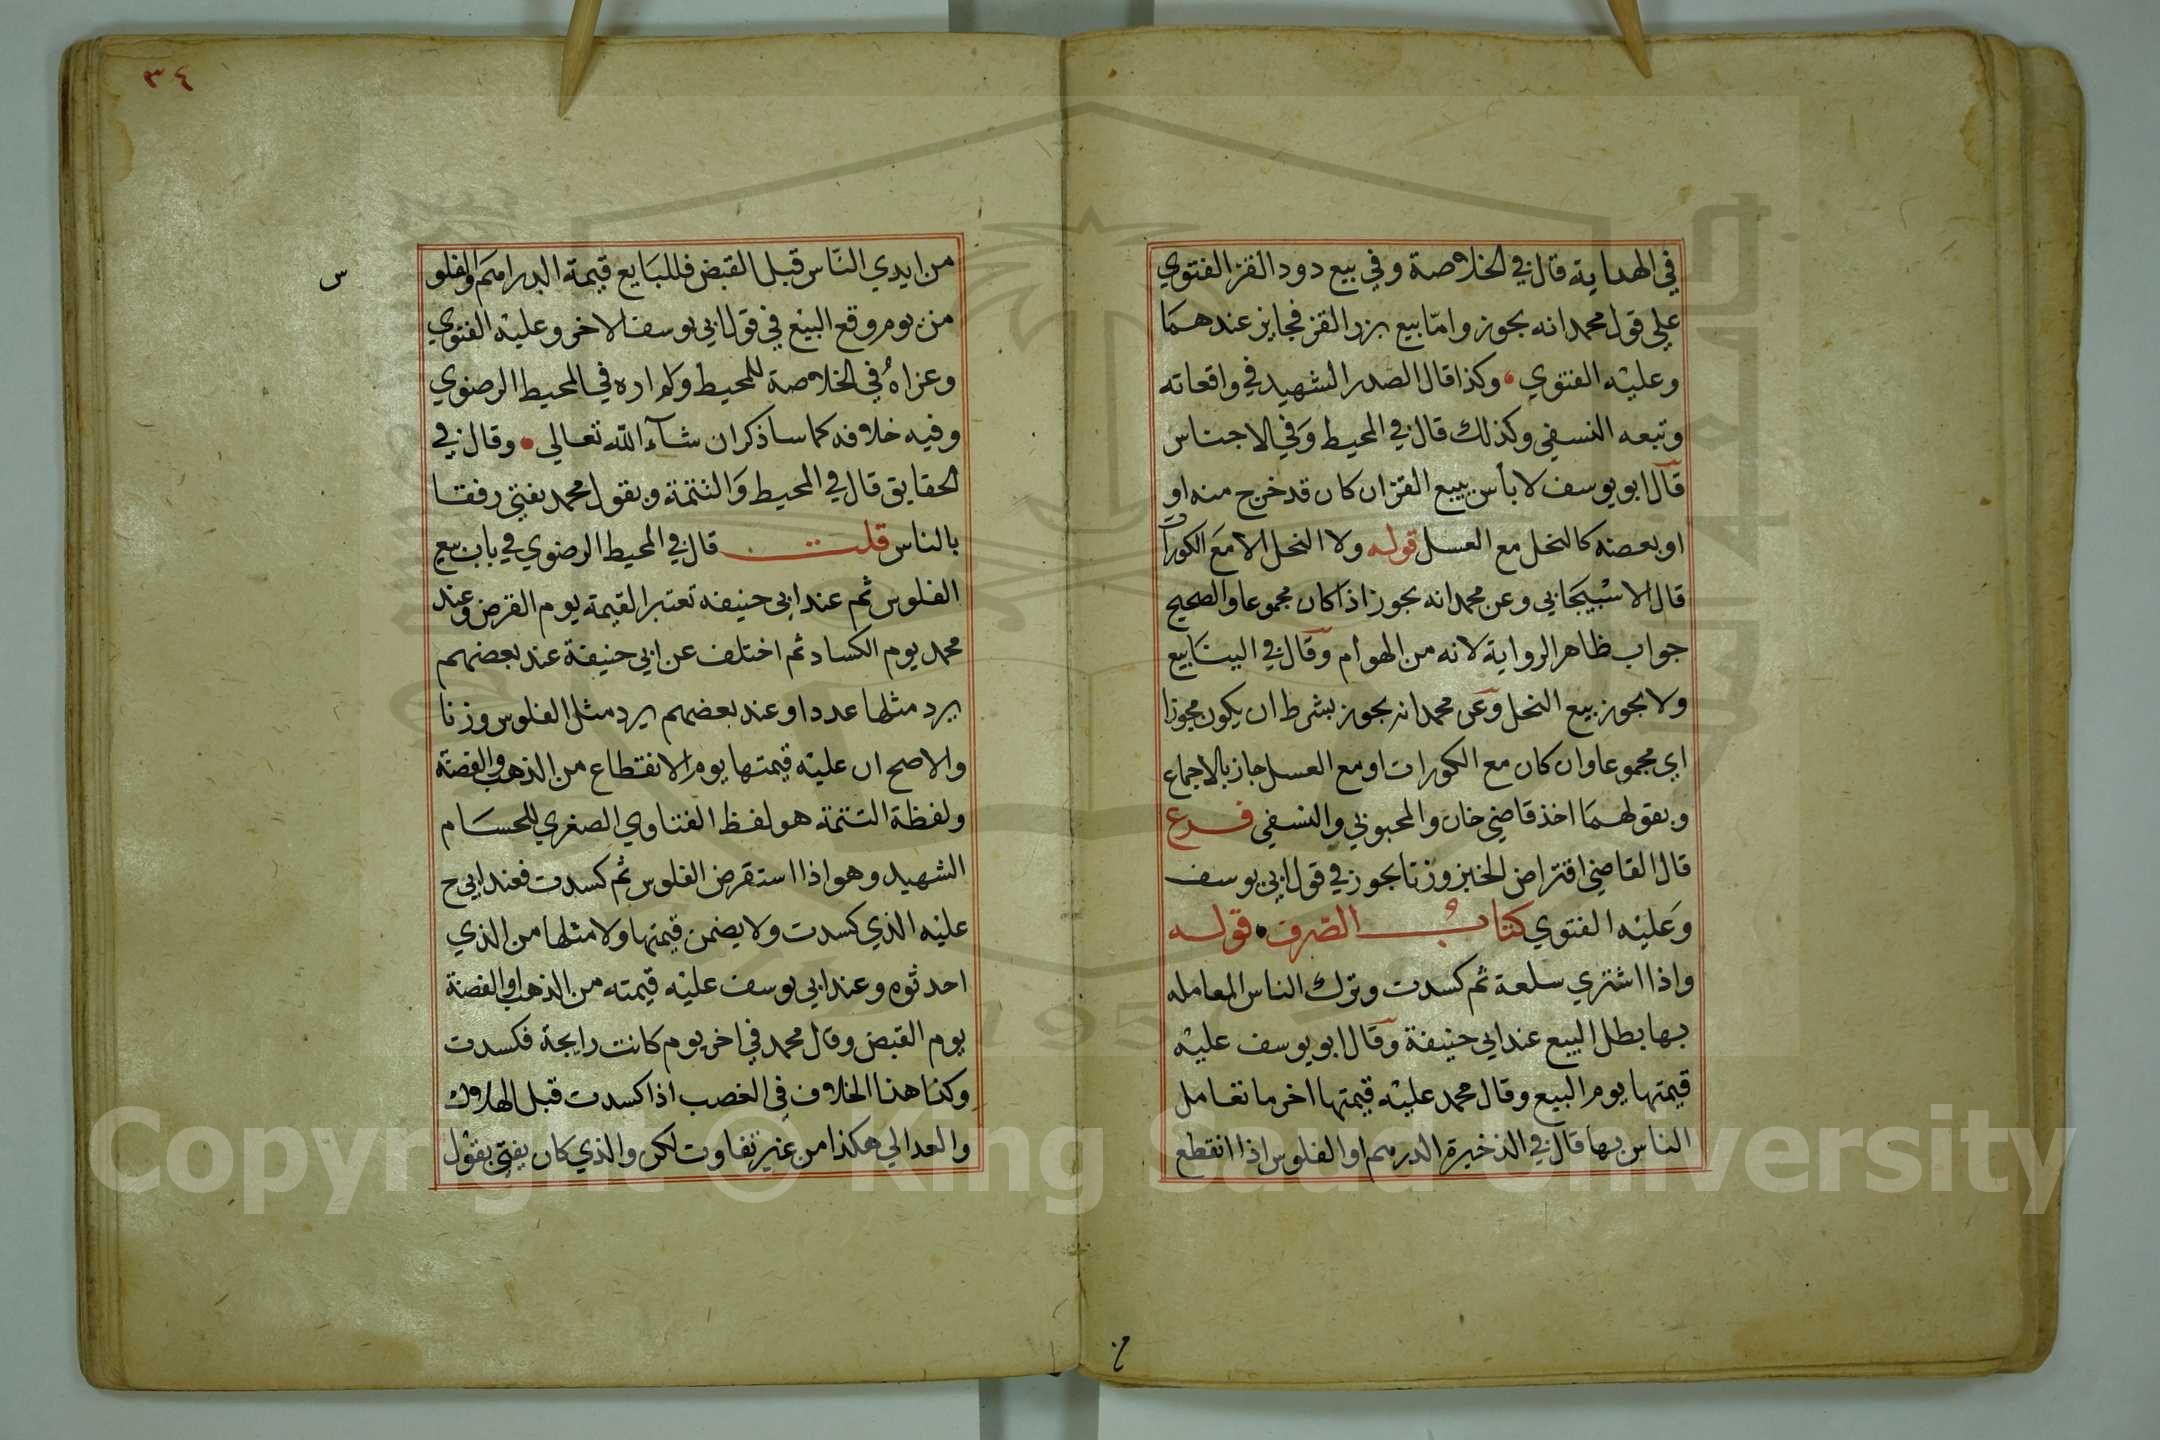 في الهداية قال في الخلاصة وفي بيع دود القز الفتوي
علي قول محمد انه يجوز واما بيع بزر القز فجايز عندهما
وعليه الفتوي وكذا قال الصدر الشهيد في واقعاته
وتبعه النسفي وكذلك قال في المحيط وفي الاجناس
قال ابو يوسف لا بأس ببيع القز ان كان قد خرج منه او
او بعضه كالنحل مع العسل قوله ولا النحل الا مع الكورات
قال الاسبيجابي وعن محمد انه يجوز اذا كان مجموعا والصحيح
جواب ظاهر الرواية لانه من الهوام وقال في الينابيع
ولا يجوز بيع النحل وعن محمد انه يجوز بشرط ان يكون محوزا
اي مجموعا وان كان مع الكورات او مع العسل جاز بالاجماع
وبقولهما اخذ قاضي خان والمحبوبي والنسفي فرع
قال القاضي اقتراض الخبز وزنا يجوز في قول ابي يوسف
وعليه الفتوي كتاب الصرف قوله
واذا اشتري سلعة ثم كسدت وترك الناس المعامله
بها بطل البيع عند ابي حنيفة وقال ابو يوسف عليه
قيمتها يوم البيع وقال محمد عليه قيمتها اخر ما تعامل
الناس بها قال في الذخيرة الدرهم او الفلوس اذا انقطع
من
٣٤
من ايدي الناس قبل القبض فللبايع قيمة الدراهم والفلو
س
من يوم وقع البيع في قول ابي يوسف الاخر وعليه الفتوي
وعزاه في الخلاصة للمحيط ولم اره في المحيط الرضوي
وفيه خلافه كما ساذكر ان شاء الله تعالي وقال في
الحقايق قال في المحيط والتتمة وبقول محمد يفتي رفقا
بالناس قلت قال في المحيط الرضوي في باب بيع
الفلوس ثم عند ابي حنيفه تعتبر القيمة يوم القرض وعند
محمد يوم الكساد ثم اختلف عن ابي حنيفة عند بعضهم
يرد مثلها عددا وعند بعضهم يرد مثل الفلوس وزنا
والاصح ان عليه قيمتها يوم الانقطاع من الذهب والفضة
ولفظة التتمة هو لفظ الفتاوي الصغري للحسام
الشهيد وهو اذا استقرض الفلوس ثم كسدت فعند ابي ح
عليه الذي كسدت ولا يضمن قيمتها ولا مثلها من الذي
احدثوه وعند ابي يوسف عليه قيمته من الذهب او الفضة
يوم القبض وقال محمد في اخر يوم كانت رايجة فكسدت
وكذا هذا الخلاف في الغصب اذا كسدت قبل الهلاك
والعدالي هكذا من غير تفاوت لكن والذي كان يفتي بقول
Copyright © King Saud University
1957